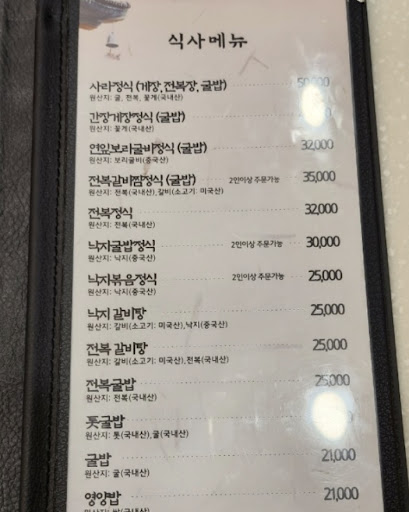 식사메뉴
사라정식 (게장, 전복장, 굴밥) 50,000
원산지: 굴, 전복, 꽃게(국내산)
간장게장정식 (굴밥)
원산지: 꽃게(국내산)
연잎보리굴비정식 (굴밥) 32,000
원산지: 보리굴비(중국산)
전복갈비찜정식 (굴밥) 2인이상 주문가능 35,000
원산지: 전복(국내산), 갈비(소고기: 미국산)
전복정식 32,000
원산지: 전복(국내산)
낙지굴밥정식 2인이상 주문가능 30,000
원산지: 낙지(중국산)
낙지볶음정식 2인이상 주문가능 25,000
원산지: 낙지(중국산)
낙지 갈비탕 25,000
원산지: 갈비(소고기: 미국산),낙지(중국산)
전복 갈비탕 25,000
원산지: 갈비(소고기: 미국산),전복(국내산)
전복굴밥 25,000
원산지: 전복(국내산)
톳굴밥
원산지: 톳(국내산),굴(국내산)
굴밥 21,000
원산지: 굴(국내산)
영양밥 21,000